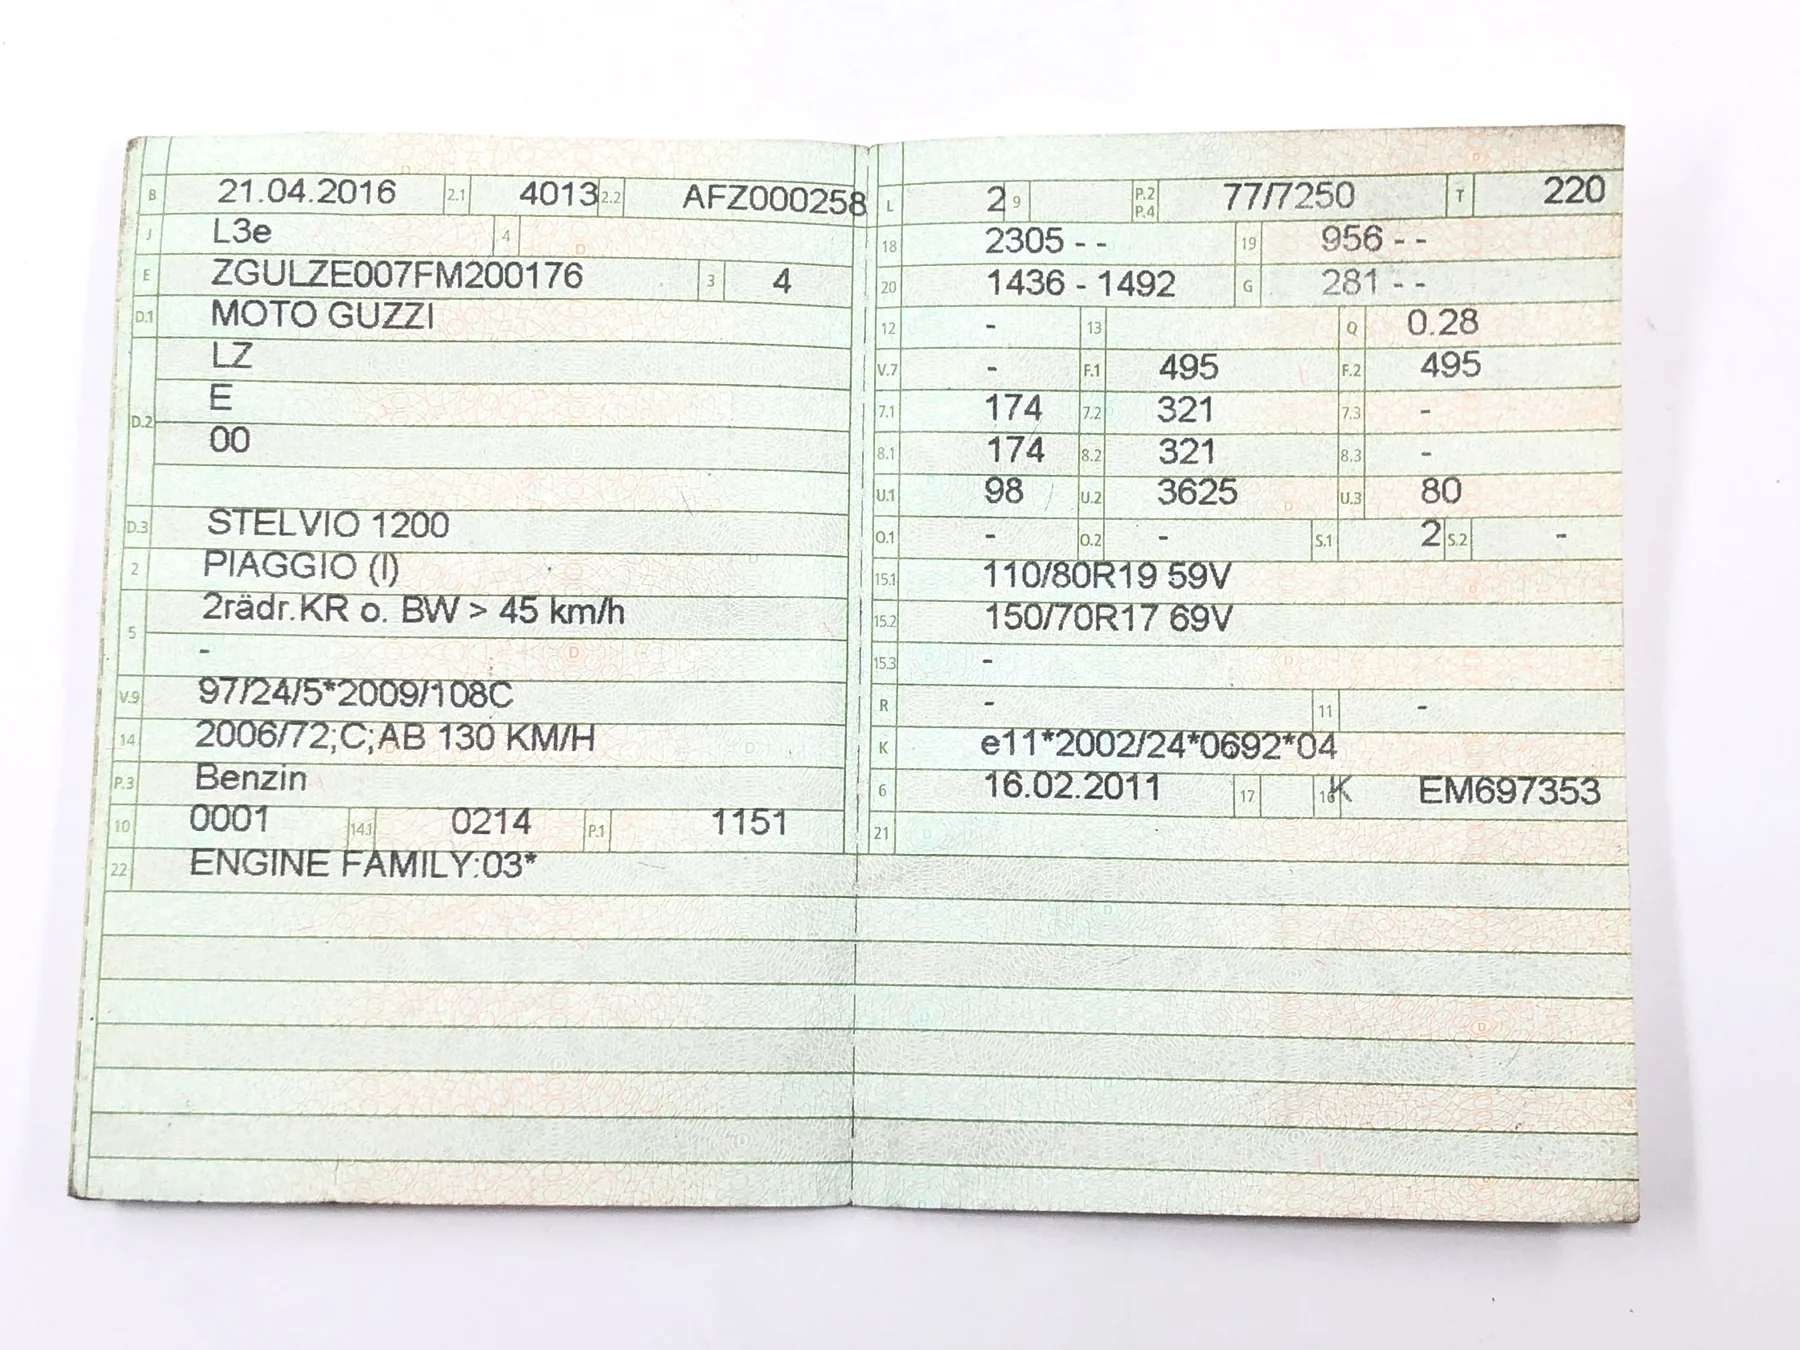 B 21.04.2016 2.1 4013 2.2 AFZ000258
J L3e 4
E ZGULZE007FM200176 3 4
D.1 MOTO GUZZI
LZ
E
D.2
00
D.3 STELVIO 1200
2 PIAGGIO (I)
2rädr.KR o. BW > 45 km/h
5
-
V.9 97/24/5*2009/108C
14 2006/72;C;AB 130 KM/H
P.3 Benzin
10 0001 14.1 0214 P.1 1151
22 ENGINE FAMILY:03*
L 2 9 P.2 P.4 77/7250 T 220
18 2305 - - 19 956 - -
20 1436 - 1492 G 281 - -
12 - 13 Q 0.28
V.7 - F.1 495 F.2 495
7.1 174 7.2 321 7.3 -
8.1 174 8.2 321 8.3 -
U.1 98 U.2 3625 U.3 80
O.1 - O.2 - S.1 2 S.2 -
15.1 110/80R19 59V
15.2 150/70R17 69V
15.3 -
R - 11 -
K e11*2002/24*0692*04
6 16.02.2011 17 K 16 EM697353
21